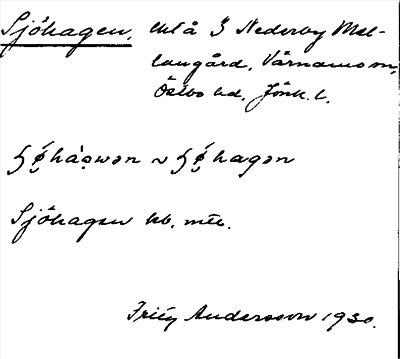 Sjöhagen, lht å 3 Nederby Mel-
langård, Värnamo sn,
Östbo hd, Jönk. l.
ɧǿ̨hàǫwən ~ ɧǿ̨hagən
Sjöhagen kb. mtl.
Frity Andersson 1930.